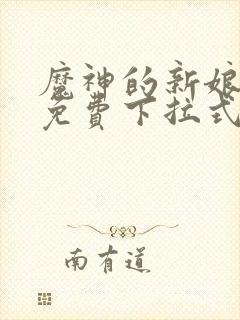 魔神的新娘
免費下拉式
南有道